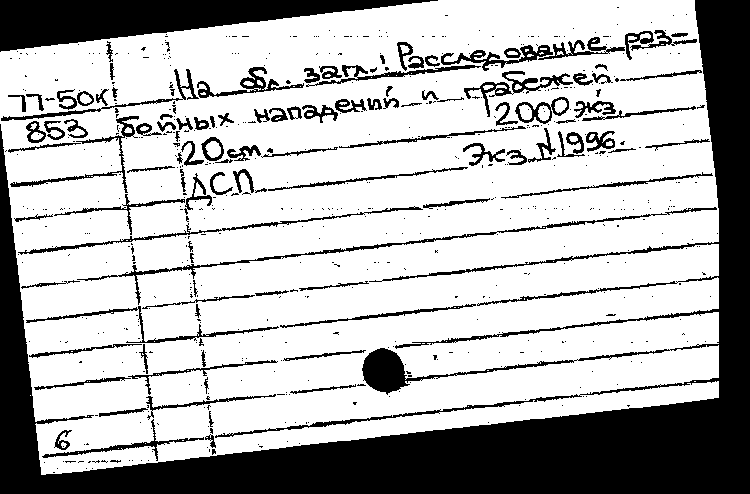 На обл. загл.: Расследование раз-
77-50к
853 бойных нападений и грабежей.
20 см. 2000 экз.
ДСП Экз №1996.
6